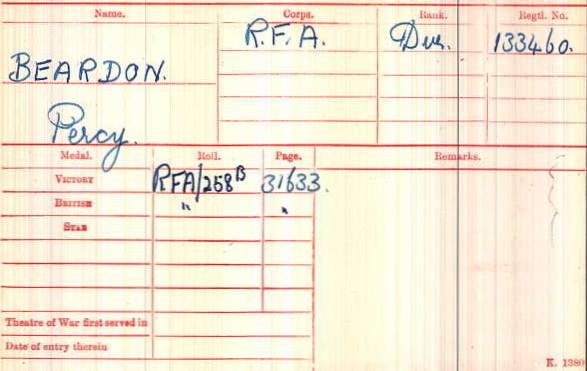 Name. Corps. Rank. Regtl. No.
BEARDON. R.F.A. Dvr. 133460.
Percy.
Medal. Roll. Page. Remarks.
VICTORY RFA/258B 31633.
BRITISH " "
STAR
Theatre of War first served in
Date of entry therein
K. 1380